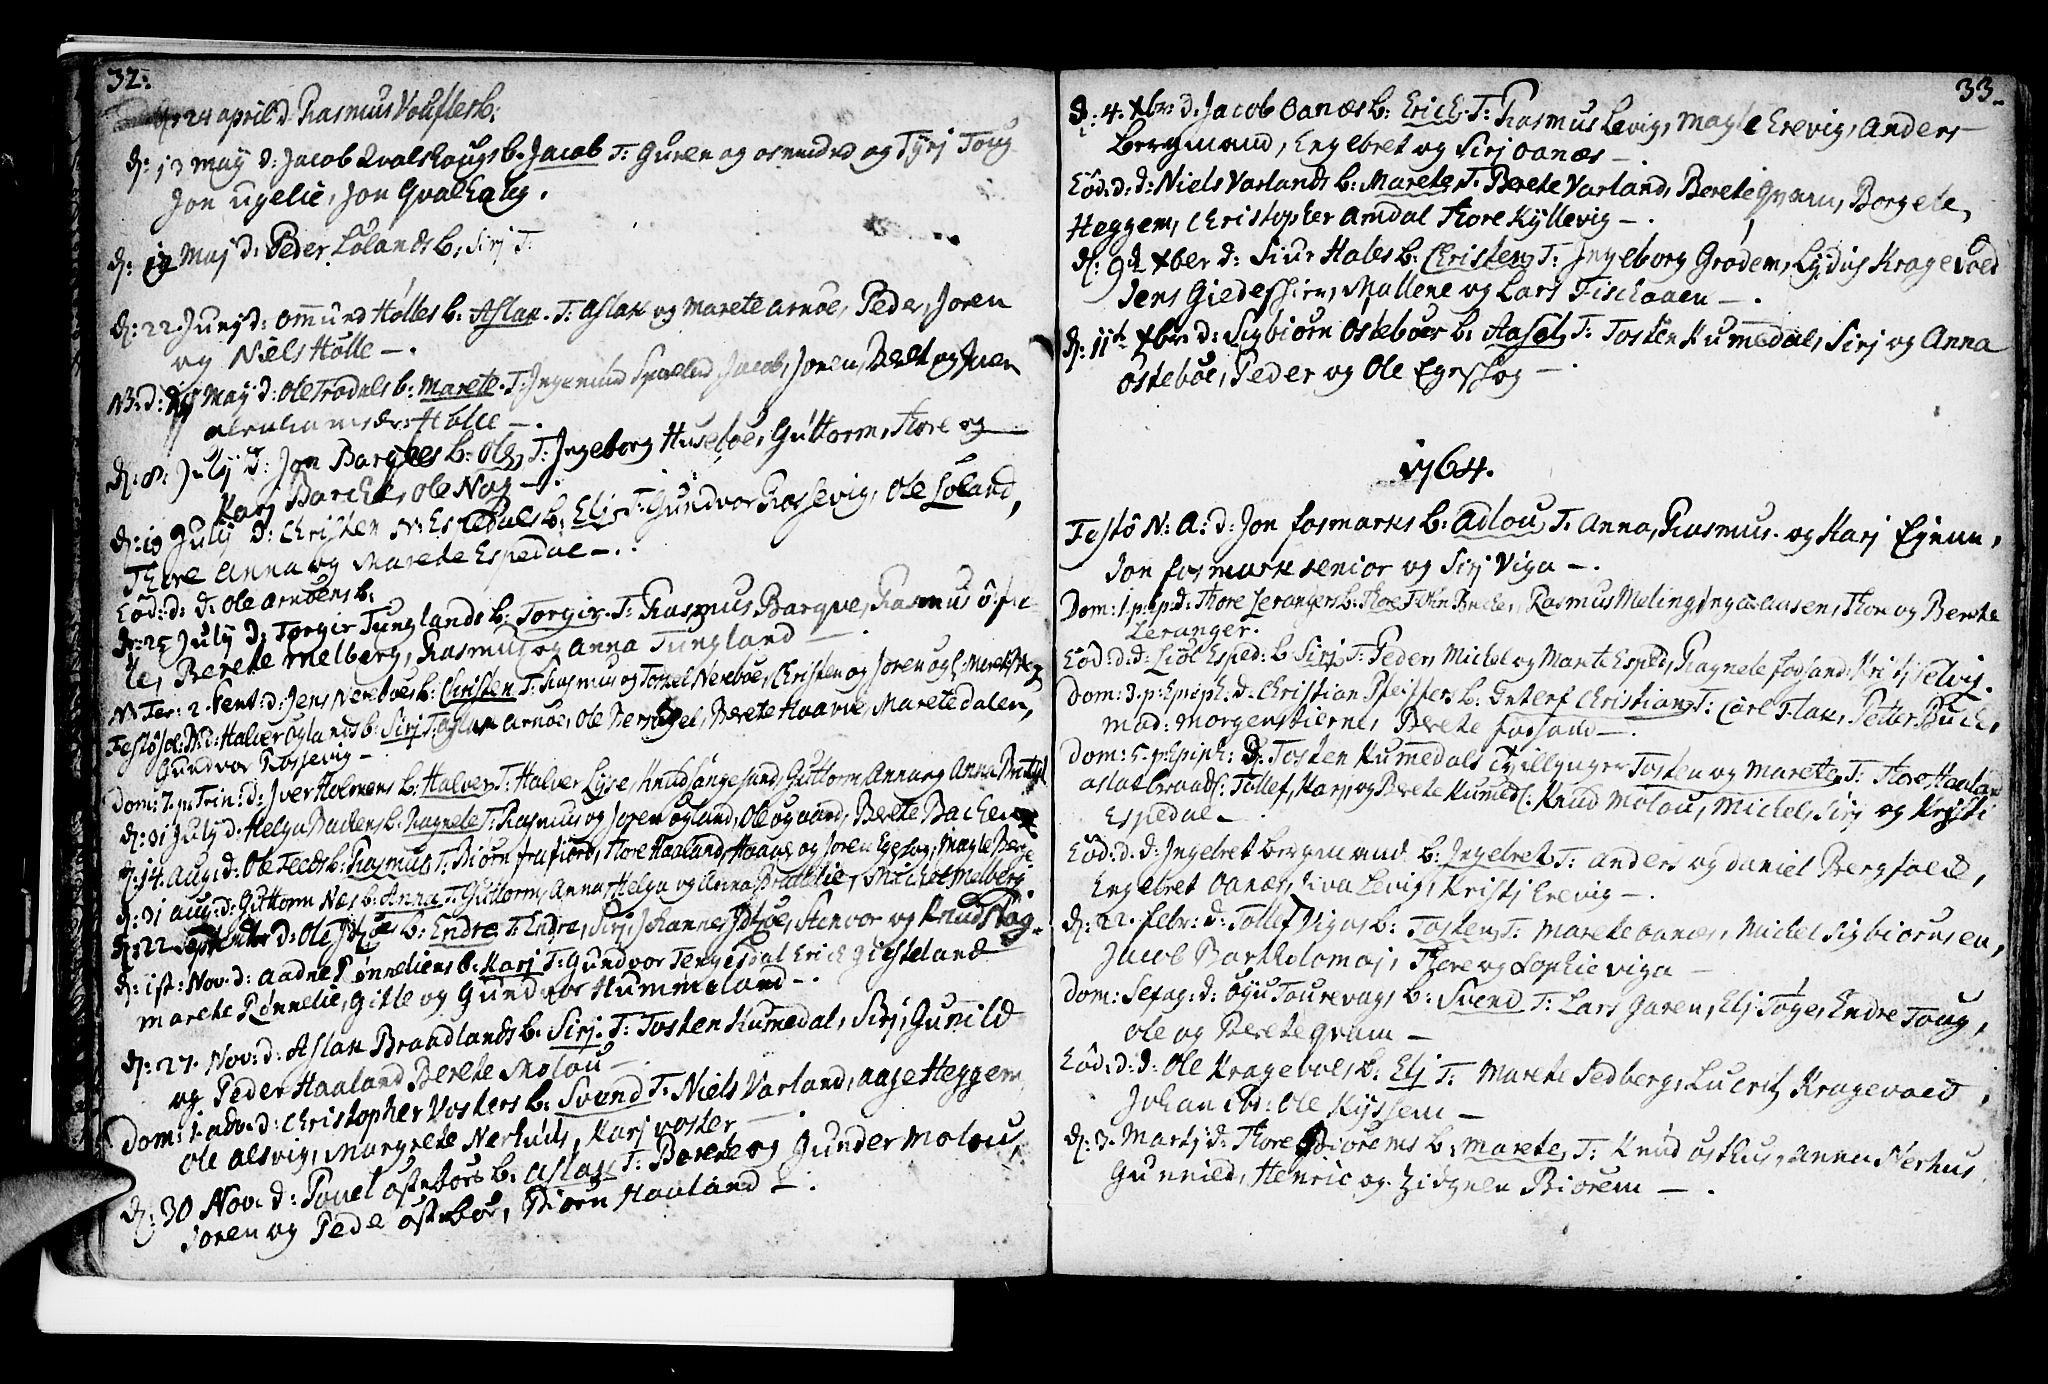 32.
24 april d. Rasmus Voustersb.
d: 13 may d: Jacob Qvalhaugs b. Jacob T: Guren og osmund og Tyrj Toug
Jon ugelie, Jon Qvalhaug.
d: 19 Maj d: Peder Lølands b. Sirj T:
d: 22 Junj d: ommund Hølles b. Aslak. T. aslak og Marete arnøe, Peder, Joren
og Niels Hølle —.
NB: d: May d: Ole Frødals b. Marete. T. Ingemund Jacob, Joren, Beret og Iver
Hølle —.
d: 8. July d: Jon Barches b. Ole, T: Ingeborg Husebøe, Guttorm, Thore og
Karj Barche, Ole Nag —.
d: 19 July d: Christen N. Espedals b. Elj T: Gundvor Rossevig, Ole Løland,
Thore Anna og Marete Espedal —.
Eôd: d: d: Ole arnøens b.
d: 25 July d: Torgir Tunglands b. Torgir. T: Rasmus Barque, Rasmus ôfste-
te, Berete melberg, Rasmus og Anna Tungland —.
NB Fer: 2. Pent: d: Jens Nerebøes b. Christen T. Rasmus og Torkel Nerebøe, Christen og Joren
Halver Øglands b. Sirj T. aslak arnøe, Ole Berete Haavie, Marete dalen,
Gundvor Rossevig —
Dom: 7. p. Trin: d: Iver Holmens b. Halver T. Halver Lyse Knud Langesund, Guttorm Anna og Anna
d: 31 July d. Helga Bachens b. Ragnete T. Rasmus og Joren øgland, Ole ogaard, Berete Bachen
d: 14. Aug: d: Ole Feeds b. Rasmus T. Biørn frafiord, Thore Haaland, og Joren Magle Berge
d: 31 aug: d: Guttorm Næs b. Anna T. Guttorm, Anna, Helga og Anna Bratlelie, Michel Melberg.
d: 22 September d: Ole b. Endre T. Endre, Sirj, Johannes Stenvor og Knud
d: 1st: Nov. d: Aadne Rønneliens b. Karj T: Gundvor Tengesdal Erich Giesteland
Marete Rønnelie, Gitle og Gundvor Hummeland —.
d: 27. Nov: d: Aslak Braadlands b. Sirj. T: Tosten Kumedal, Sirj, Gunild
og Peder Haaland Berete Molou —.
Dom: 1. adv: d: Christopher Vosters b. Svend T. Niels Varland, aase Heggem
Ole alsvig, Margrete Nerhuus, Karj voster —.
d: 30 Nov. d: Povel ostebøes b. Aslak T. Berete og Gunder Molou,
Joren og Pede ostebøe, Biørn Haaland —.
33.
d: 4. Xbr: d: Jacob Oanæs b: Erich T: Rasmus Levig, Magle Erevig, Anders
Bergmand, Engelbret og Sirj Oanæs —.
Eôd: d: d: Niels Varlands b: Marete, T. Berete Varland, Berete Qvam, Borgele,
Heggem, Christopher Amdal Thore Kyllevig —.
d: 9de Xber d: Siur Hales b: Christen T: Ingeborg Grødem, Lydius Kragevoed
Jens Giedeshien, Mallene og Lars Fischaaen —.
d: 11te Xbr: d: Sigbiørn Ostebøes b: Aasel, T: Tosten Kumedal, Sirj og Anna
Ostebøe, Peder og Ole Egeskog —.
1764.
Festô N: A: d: Jon fosmarks b: Adlou T. Anna, Rasmus og Karj Ejene,
Jon fosmark senior og Sirj Viga —.
Dom: 1. p: Ep: d: Thore Lerangers b. Thore T. Rasmus Meling, Thore og Berete
Leranger.
Eôd: d: d: Liôl Esped: b. Sirj T: Peder, Michel og Marete Esped, Ragnele fossand, Kristj Helvig.
Dom: 3. p: Epiph: d. Christian Pfeiffers b. Enterf Christian T. Carl Flak, Petter Buch,
Mad: Morgenstierne, Berete fossand —.
Dom: 5. p: Epiph: d. Tosten Kumedals Tvillynger Tosten og Marete T. Thore Haaland
aslak braadl. Tollef, Karj, og Berete Kumed. Knud Molou, Michel, Sirj og Kristj
Espedal —.
Eôd: d: d: Ingelret bergmand b: Ingelret T: Anders og Daniel Bergsaled,
Engelbret Oanæs, Siva Levig, Kristj Erevig —.
d: 22. Febr: d: Tollef Vigas b: Tosten T: Marete Oanæs, Michel Sigbiørnsen,
Jacob Bartholomæj, Thore og Sophie Viga —
Dom: Sexag: d: Ogu Tourevags b: Svend T: Lars Garen, Elj Toge, Endre Toug,
Ole og Berete Qvam —
Eôd: d: d: Ole Kragebøes b: Elj T: Marete Sedberg, Lucretz Kragevoed,
Johan ibs: Ole Kyssem —
d: 3. Martj d: Thore Biørems b: Marete, T. Knud oshus, Anna Nerhus
Gunnild, Henric og Biorem —.